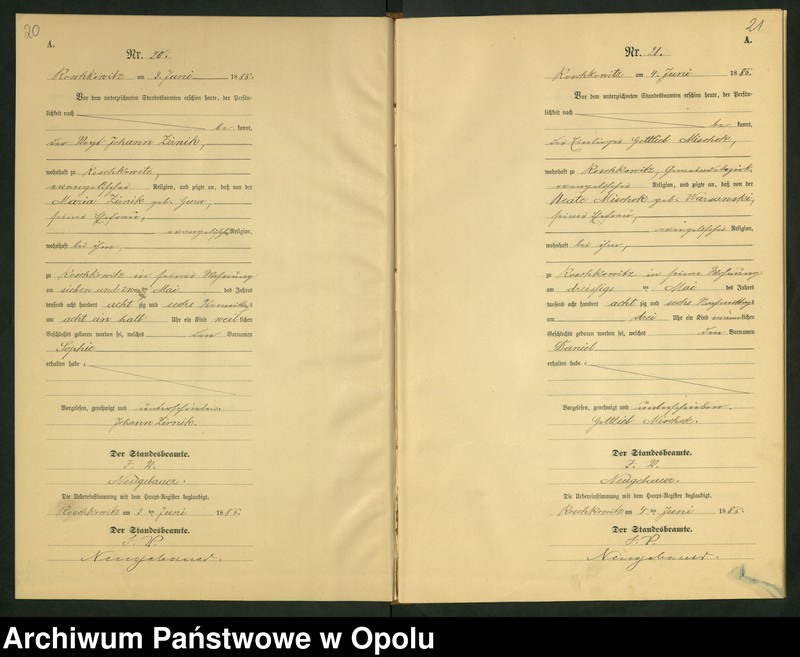 20
A.
Nr. 20.
Roschkowitz am 3. Juni 1886.
Vor dem unterzeichneten Standesbeamten erschien heute, der Persön-
lichkeit nach
be kannt,
der Vogt Johann Zirnik,
wohnhaft zu Roschkowitz,
evangelischer Religion, und zeigte an, daß von der
Maria Zirnik geb.
seiner Ehefrau,
evangelischer Religion,
wohnhaft bei ihm,
zu Roschkowitz in seiner Wohnung
am sieben und zwan ten Mai des Jahres
tausend acht hundert acht zig und sechs Vormittags
um acht ein halb Uhr ein Kind weib lichen
Geschlechts geboren worden sei, welches den Vornamen
Sophie
erhalten habe.
Vorgelesen, genehmigt und unterschrieben.
Johann Zirnik.
Der Standesbeamte.
Neugebauer.
Die Uebereinstimmung mit dem Haupt-Register beglaubigt.
Roschkowitz am 3 ten Juni 1886.
Der Standesbeamte.
Neugebauer.
21
A.
Nr. 21.
Roschkowitz am 4. Juni 1886.
Vor dem unterzeichneten Standesbeamten erschien heute, der Persön-
lichkeit nach
be kannt,
der Gottlieb Mischok,
wohnhaft zu Roschkowitz,
evangelischer Religion, und zeigte an, daß von der
Beate Mischok geb. Warsawski,
seiner Ehefrau,
evangelischer Religion,
wohnhaft bei ihm,
zu Roschkowitz in seiner Wohnung
am dreißigs ten Mai des Jahres
tausend acht hundert acht zig und sechs Nachmittags
um drei Uhr ein Kind männ lichen
Geschlechts geboren worden sei, welches den Vornamen
Daniel
erhalten habe.
Vorgelesen, genehmigt und unterschrieben.
Gottlieb Mischok.
Der Standesbeamte.
Neugebauer.
Die Uebereinstimmung mit dem Haupt-Register beglaubigt.
Roschkowitz am 4 ten Juni 1886.
Der Standesbeamte.
Neugebauer.
Archiwum Państwowe w Opolu